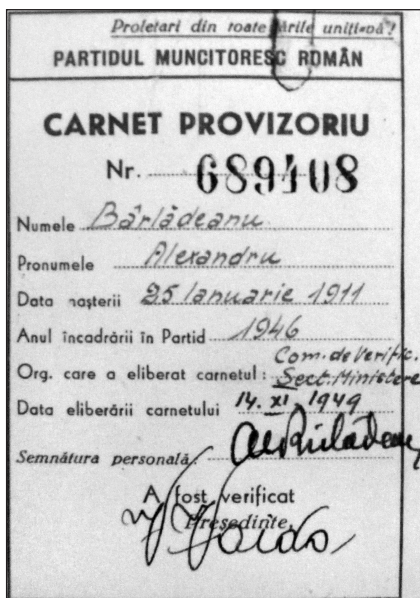 Proletari din toate țările uniți-vă!
PARTIDUL MUNCITORESC ROMÂN
CARNET PROVIZORIU
Nr. 689408
Numele Bârlădeanu
Pronumele Alexandru
Data nașterii 25 Ianuarie 1911
Anul încadrării în Partid 1946
Com. de Verific.
Org. care a eliberat carnetul: Sect. Ministere
Data eliberării carnetului 14. XI. 1949
Semnătura personală: Al Bârlădeanu
A fost verificat
Președinte,